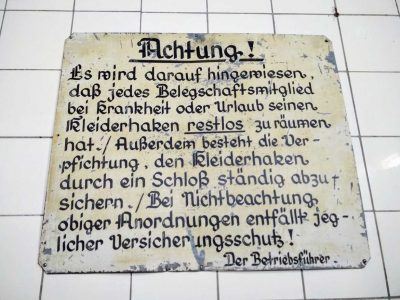 Achtung!
Es wird darauf hingewiesen,
daß jedes Belegschaftsmitglied
bei Krankheit oder Urlaub seinen
Kleiderhaken restlos zu räumen
hat./Außerdem besteht die Ver-
pfichtung, den Kleiderhaken
durch ein Schloß ständig abzu-
sichern./Bei Nichtbeachtung
obiger Anordnungen entfällt jeg-
licher Versicherungsschutz!
Der Betriebsführer.